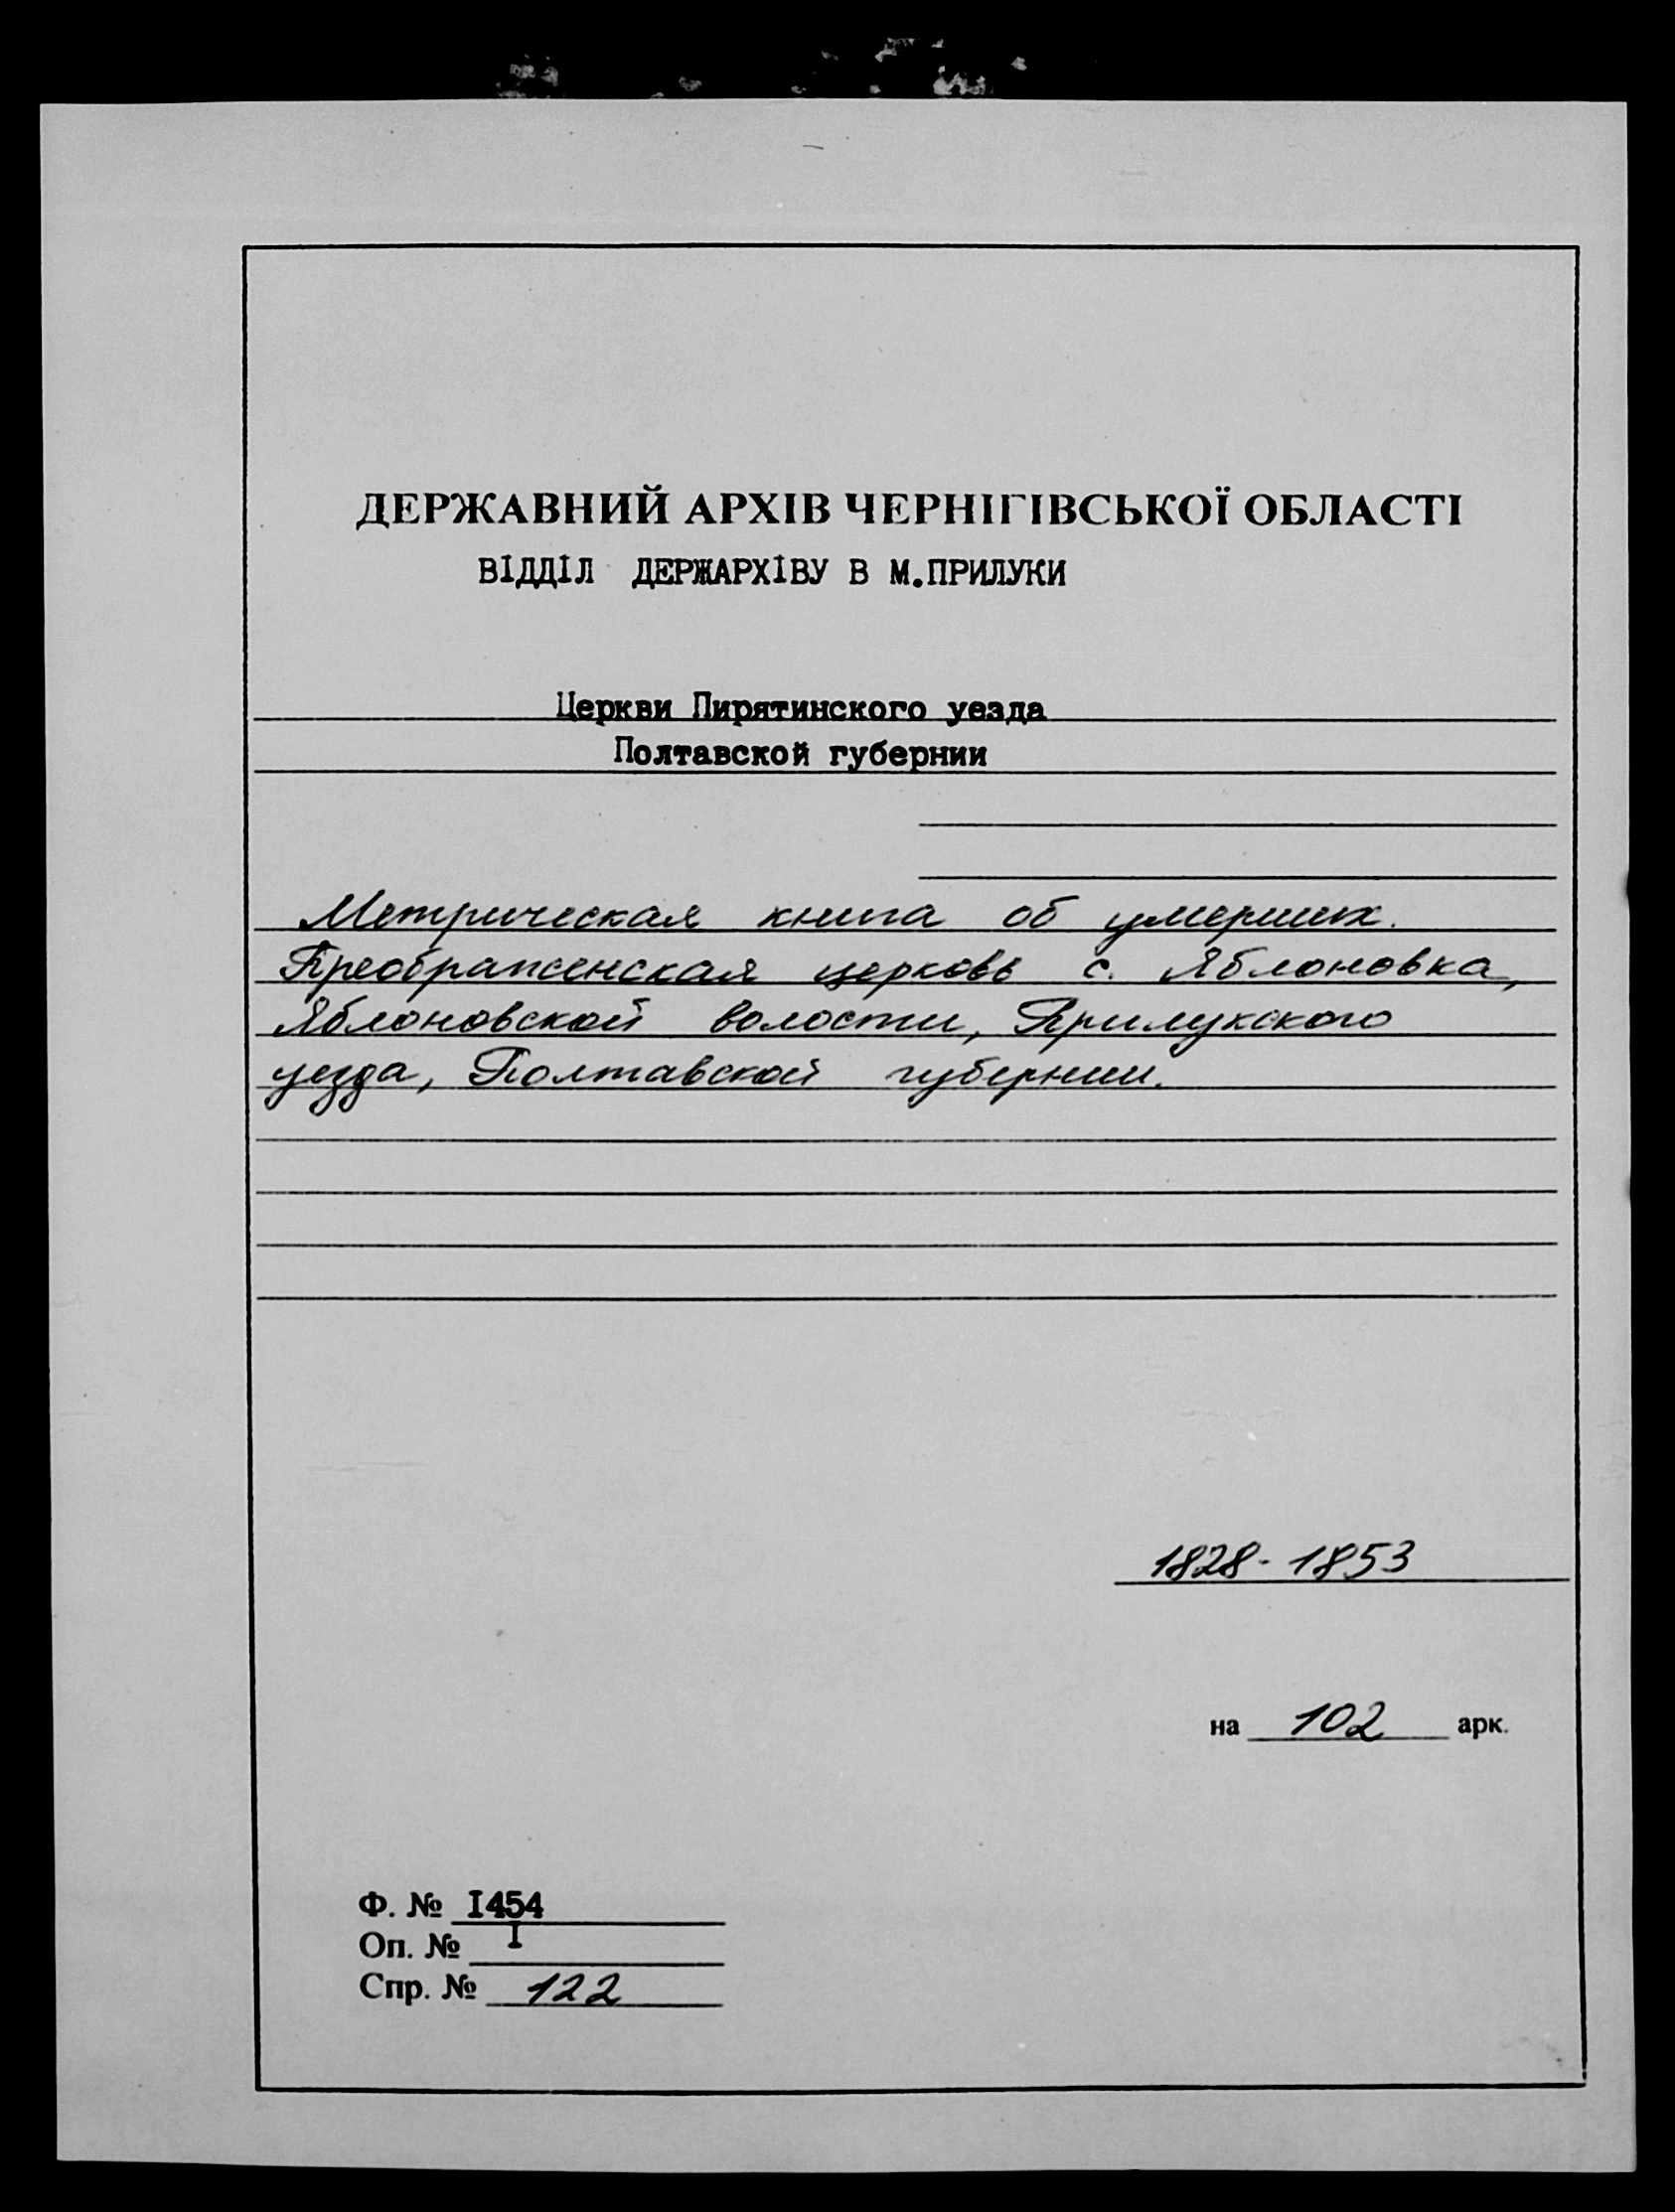 ДЕРЖАВНИЙ АРХІВ ЧЕРНІГІВСЬКОЇ ОБЛАСТІ
ВІДДІЛ ДЕРЖАРХІВУ В М.ПРИЛУКИ
Церкви Пирятинского уезда
Полтавской губернии
Метрическая книга об умерших.
Преображенская церковь с. Яблоновка,
Яблоновской волости, Прилукского
уезда, Полтавской губернии.
1828-1853
на 102 арк.
Ф. № I454
Оп. № I
Спр. № 122